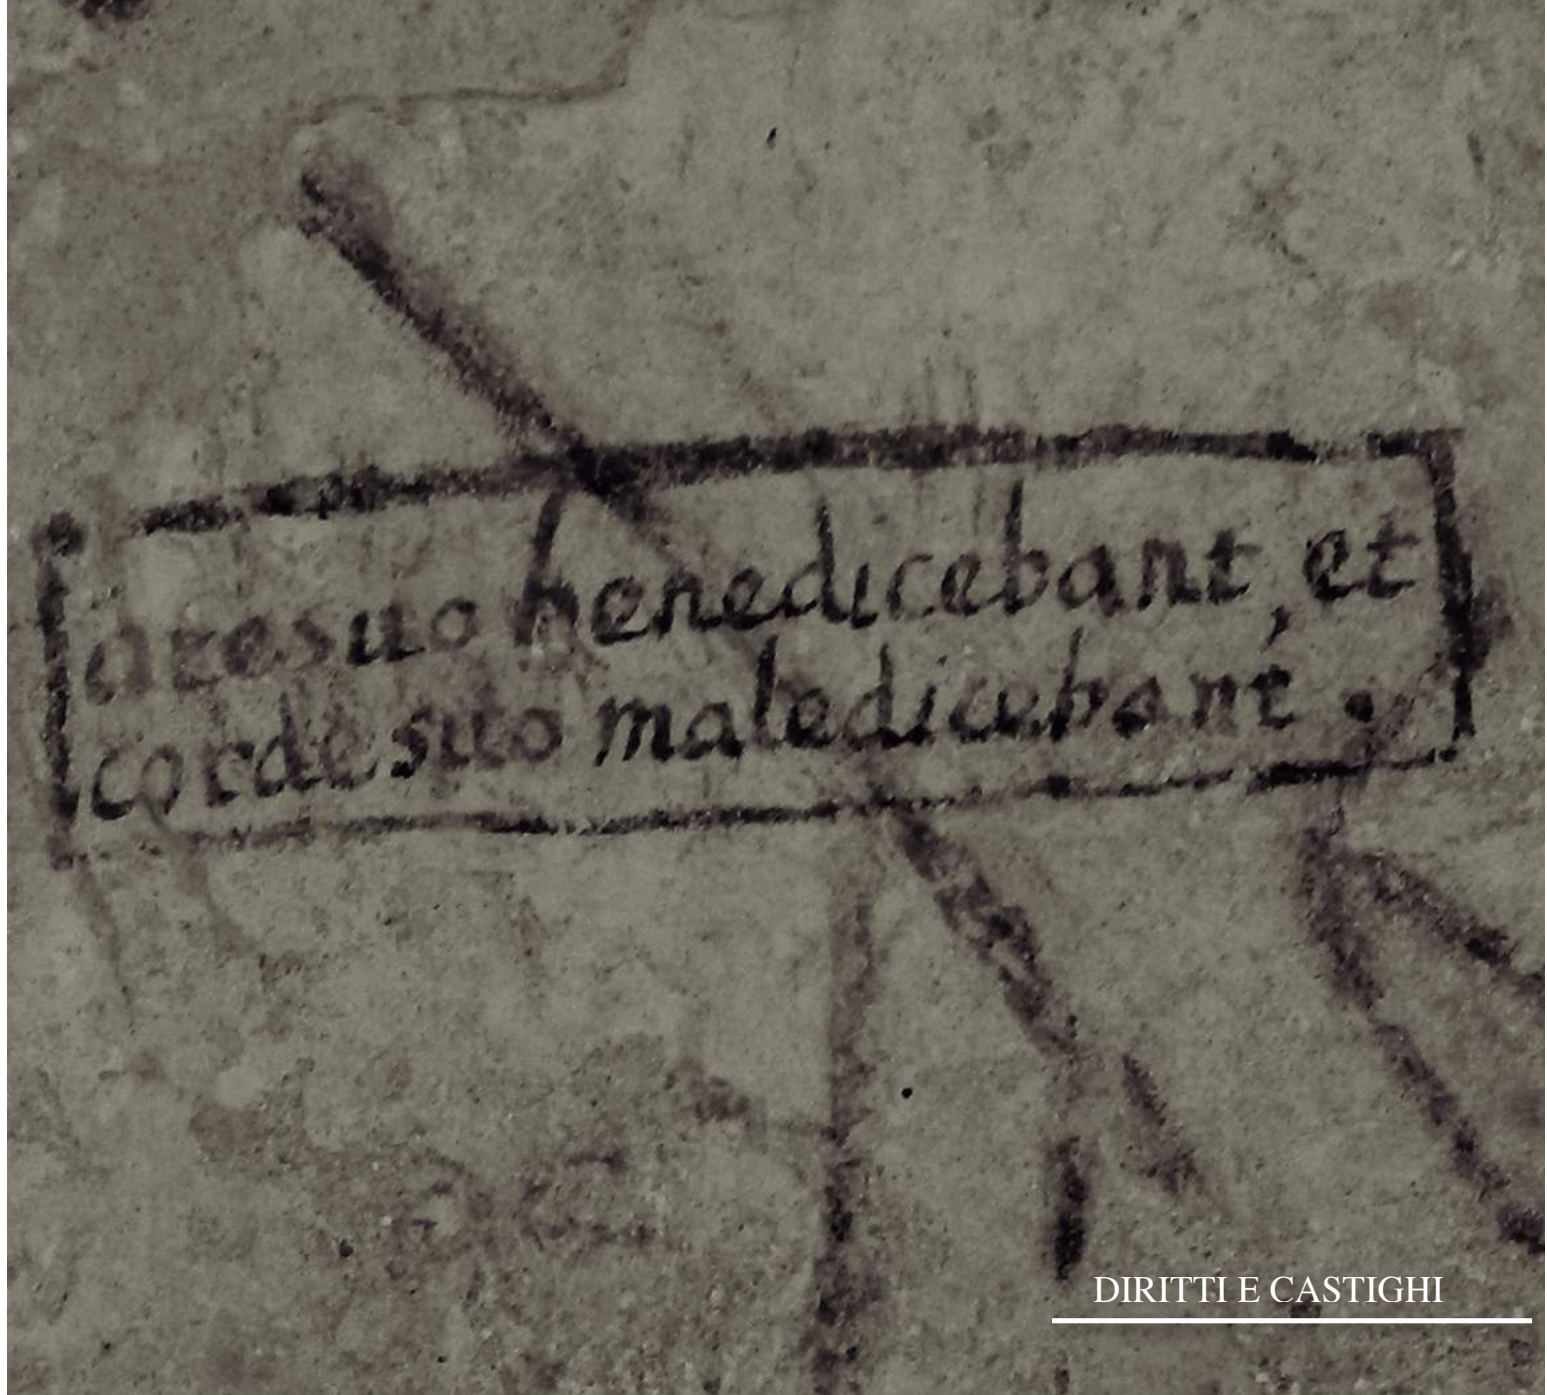 ore suo benedicebant, et
corde suo maledicebant.
DIRITTI E CASTIGHI